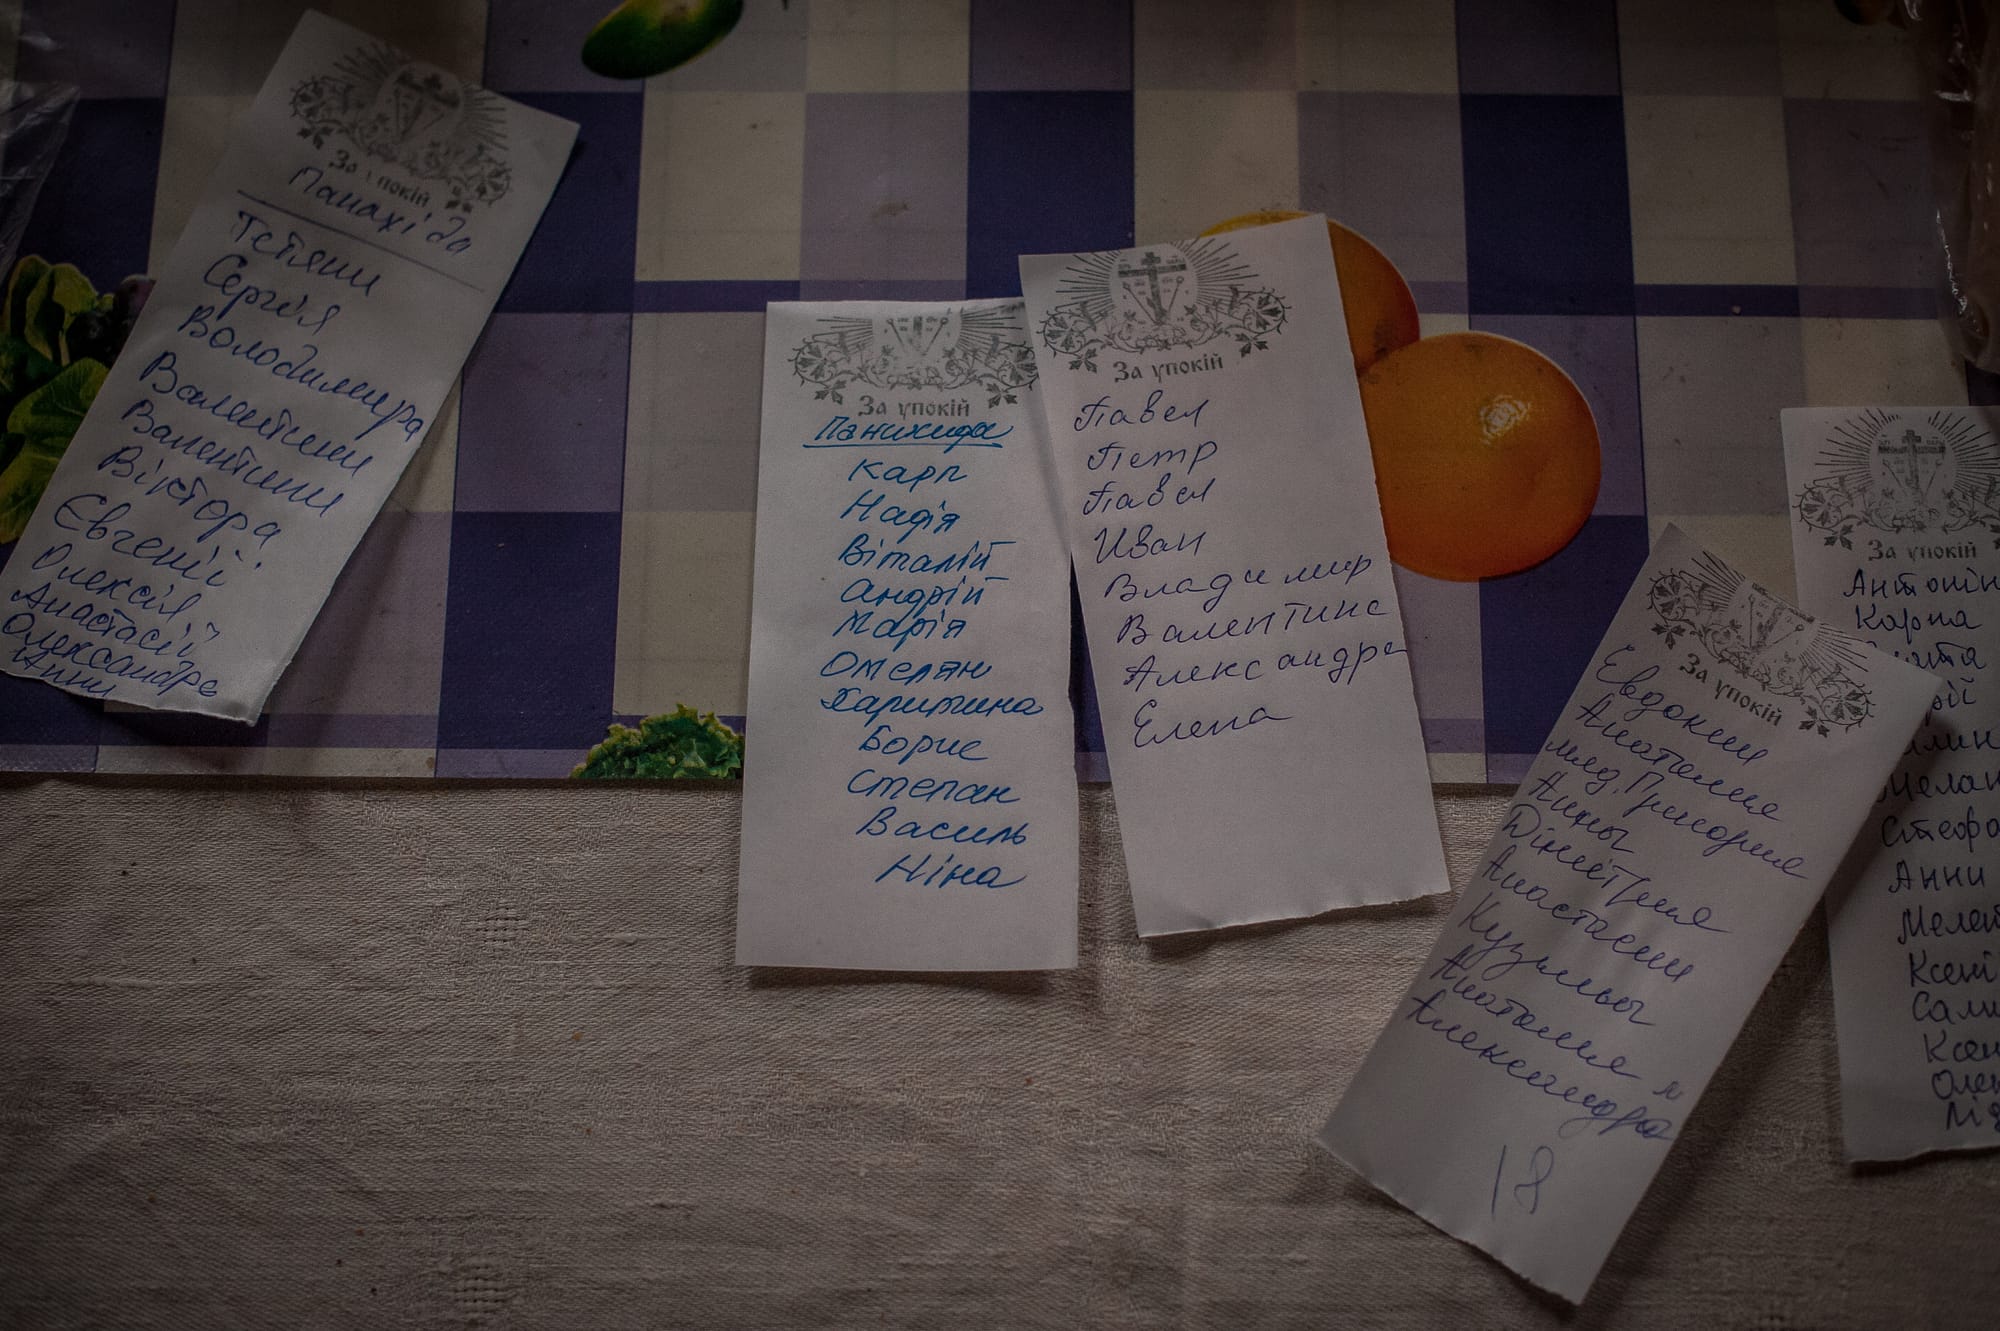 За упокій
Панахіда
Тетяни
Сергія
Володимира
Валентини
Валентини
Віктора
Євгенії
Олексія
Анастасії
Олександра
Анни
За упокій
Панихида
Карп
Надія
Віталій
Андрій
Марія
Омелян
Харитина
Борис
Степан
Василь
Ніна
За упокій
Павел
Петр
Павел
Иван
Владимир
Валентина
Александра
Елена
За упокій
Евдокии
Анатолия
млд. Григория
Анны
Дімітрия
Анастасии
Кузьмы
Анатолия
Александра
18
За упокій
Антонін
Карпа
рій
Мелан
Стефа
Анни
Мелет
Ксені
Сали
Ксен
Олек
Лід